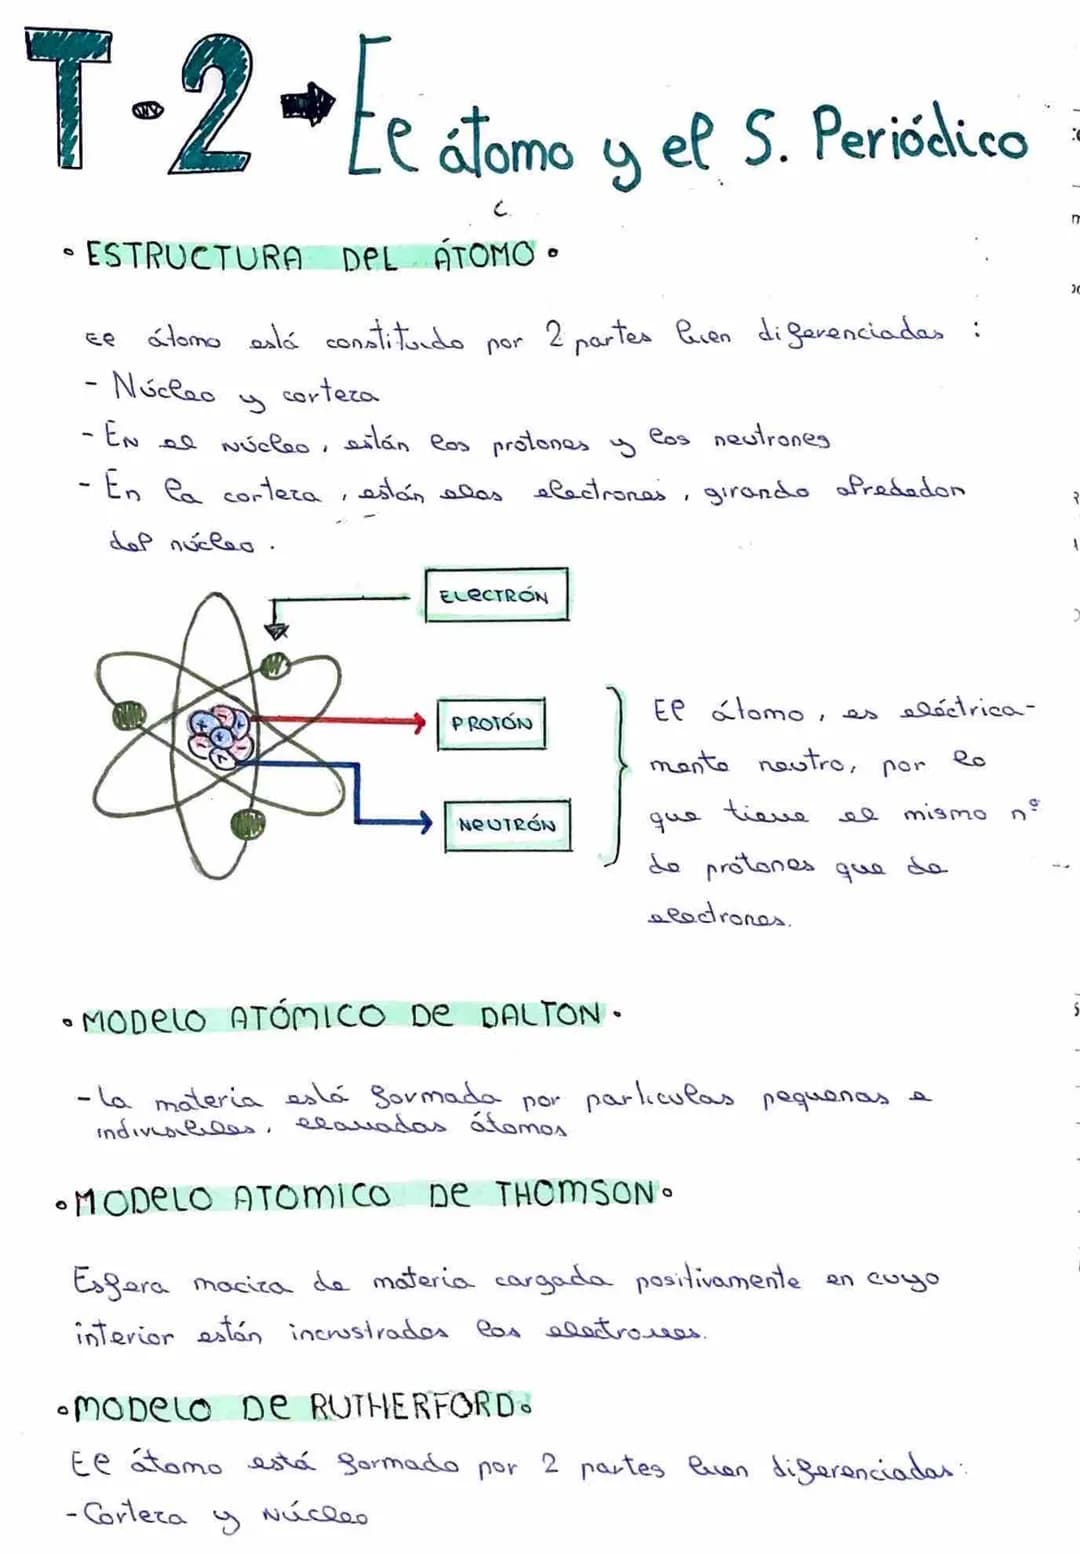 T-2 → El átomo y el S. Periódico
• ESTRUCTURA DEL ÁTOMO •
El átomo está constituido por 2 partes bien diferenciadas :
- Núcleo y corteza
- En el núcleo, están los protones y los neutrones
- En la corteza, están los electrones, girando alrededor
del núcleo.
ELECTRÓN
PROTÓN
NEUTRÓN
El átomo, es eléctrica-
mente neutro, por lo
que tiene el mismo nº
de protones que de
electrones.
• MODELO ATÓMICO DE DALTON •
- La materia está formada por partículas pequeñas e
indivisibles, llamadas átomos
• MODELO ATOMICO DE THOMSON •
Esfera maciza de materia cargada positivamente en cuyo
interior están incrustrados los electrones.
• MODELO DE RUTHERFORD •
El átomo está formado por 2 partes bien diferenciadas:
- Corteza y Núcleo